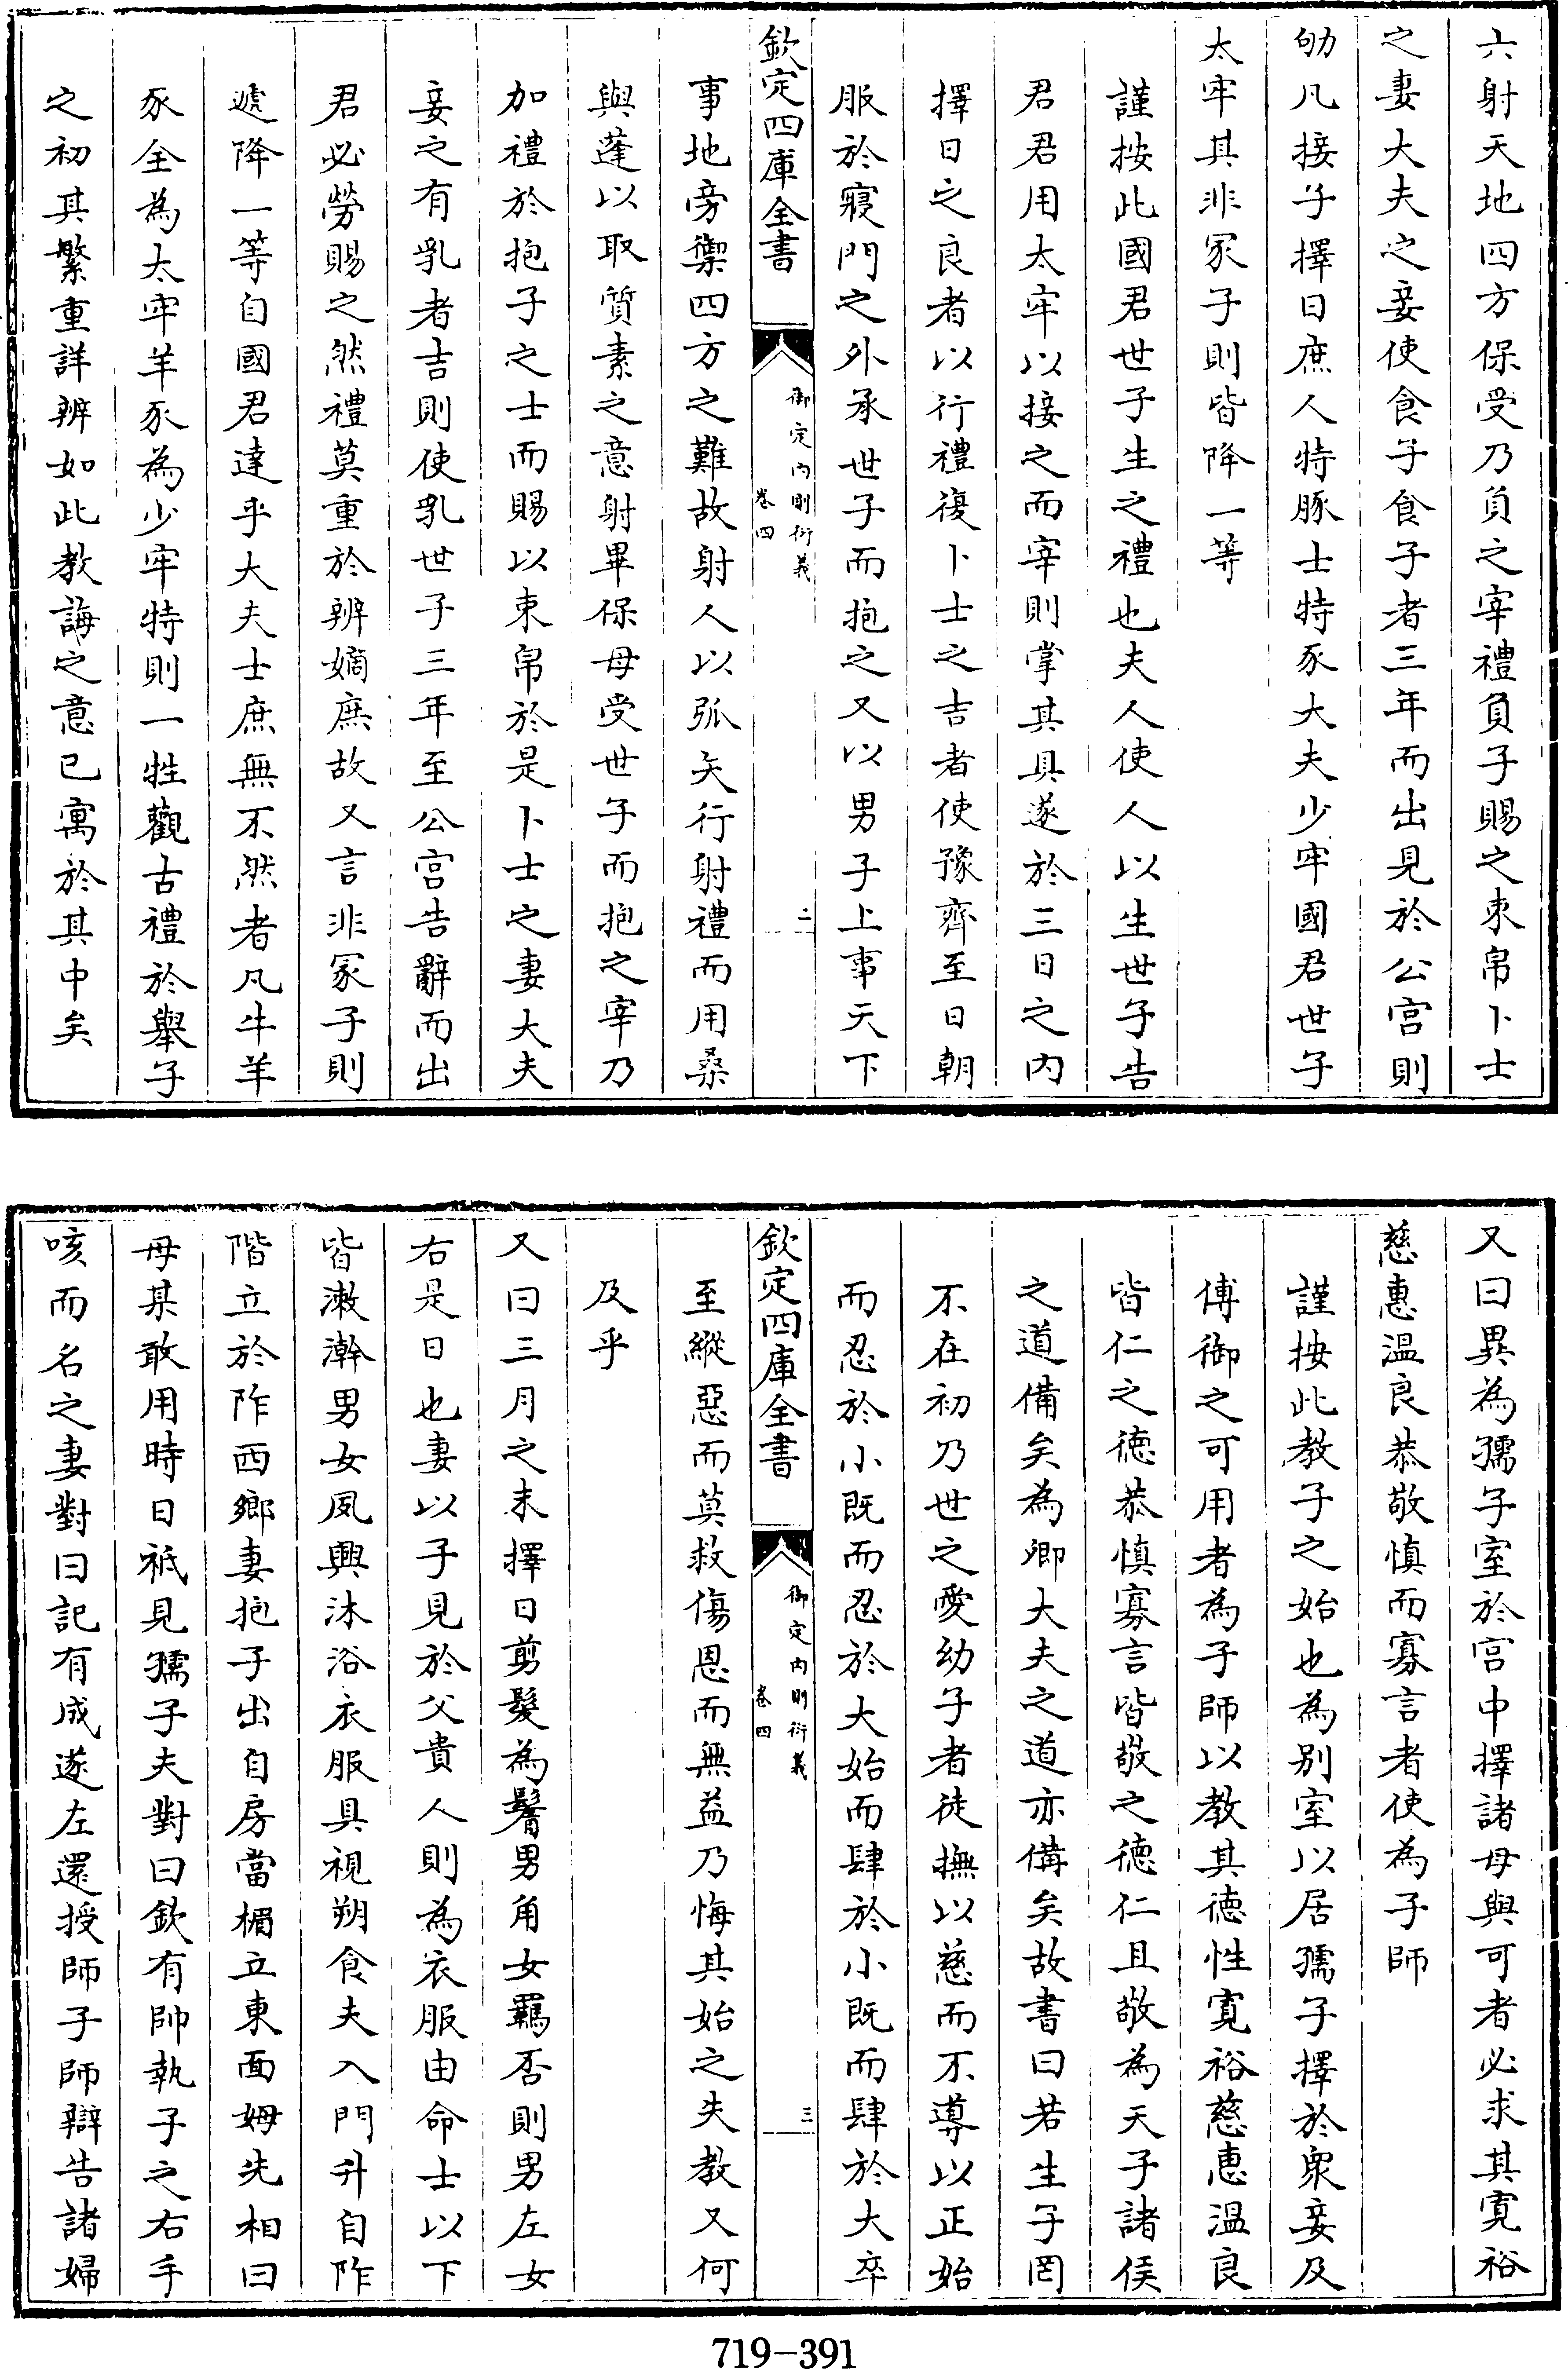 六射天地四方保受乃負之宰禮負子賜之束帛卜士
之妻大夫之妾使食子食子者三年而出見於公宫則
劬凡接子擇日庶人特豚士特豕大夫少牢國君世子
太牢其非冢子則皆降一等
謹按此國君世子生之禮也夫人使人以生世子告
君君用太牢以接之而宰則掌其具遂於三日之内
擇日之良者以行禮復卜士之吉者使豫齊至日朝
服於寢門之外承世子而抱之又以男子上事天下
欽定四庫全書
御定内則衍義
卷四
二
事地旁禦四方之難故射人以弧矢行射禮而用桑
與蓬以取質素之意射畢保母受世子而抱之宰乃
加禮於抱子之士而賜以束帛於是卜士之妻大夫
妾之有乳者吉則使乳世子三年至公宫告辭而出
君必勞賜之然禮莫重於辨嫡庶故又言非冢子則
遞降一等自國君達乎大夫士庶無不然者凡牛羊
豕全為太牢羊豕為少牢特則一牲觀古禮於舉子
之初其繁重詳辨如此教誨之意已寓於其中矣
又曰異為孺子室於宫中擇諸母與可者必求其寛裕
慈惠温良恭敬慎而寡言者使為子師
謹按此教子之始也為别室以居孺子擇於衆妾及
傅御之可用者為子師以教其徳性寛裕慈惠温良
皆仁之徳恭慎寡言皆敬之徳仁且敬為天子諸侯
之道備矣為卿大夫之道亦備矣故書曰若生子罔
不在初乃世之愛幼子者徒撫以慈而不導以正始
而忍於小既而忍於大始而肆於小既而肆於大卒
欽定四庫全書
御定内則衍義
卷四
三
至縱惡而莫救傷恩而無益乃悔其始之失教又何
及乎
又曰三月之末擇日剪髮為鬌男角女羈否則男左女
右是日也妻以子見於父貴人則為衣服由命士以下
皆漱澣男女夙興沐浴衣服具視朔食夫入門升自阼
階立於阼西鄉妻抱子出自房當楣立東面姆先相曰
母某敢用時日祗見孺子夫對曰欽有帥執子之右手
咳而名之妻對曰記有成遂左還授師子師辯告諸婦
719-391